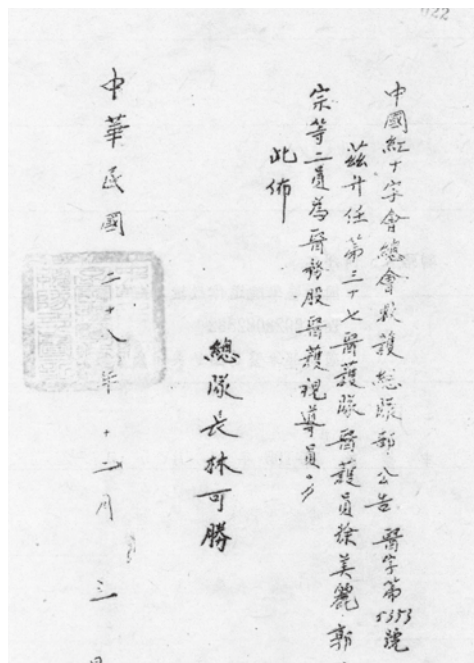 022
中國紅十字會總會救護總隊部公告 醫字第5353號
茲升任第三十七醫護隊醫護員徐美麗、郭
宗等二員為醫務股醫護視導員。
此佈
總隊長林可勝
中華民國二十八年十二月 三